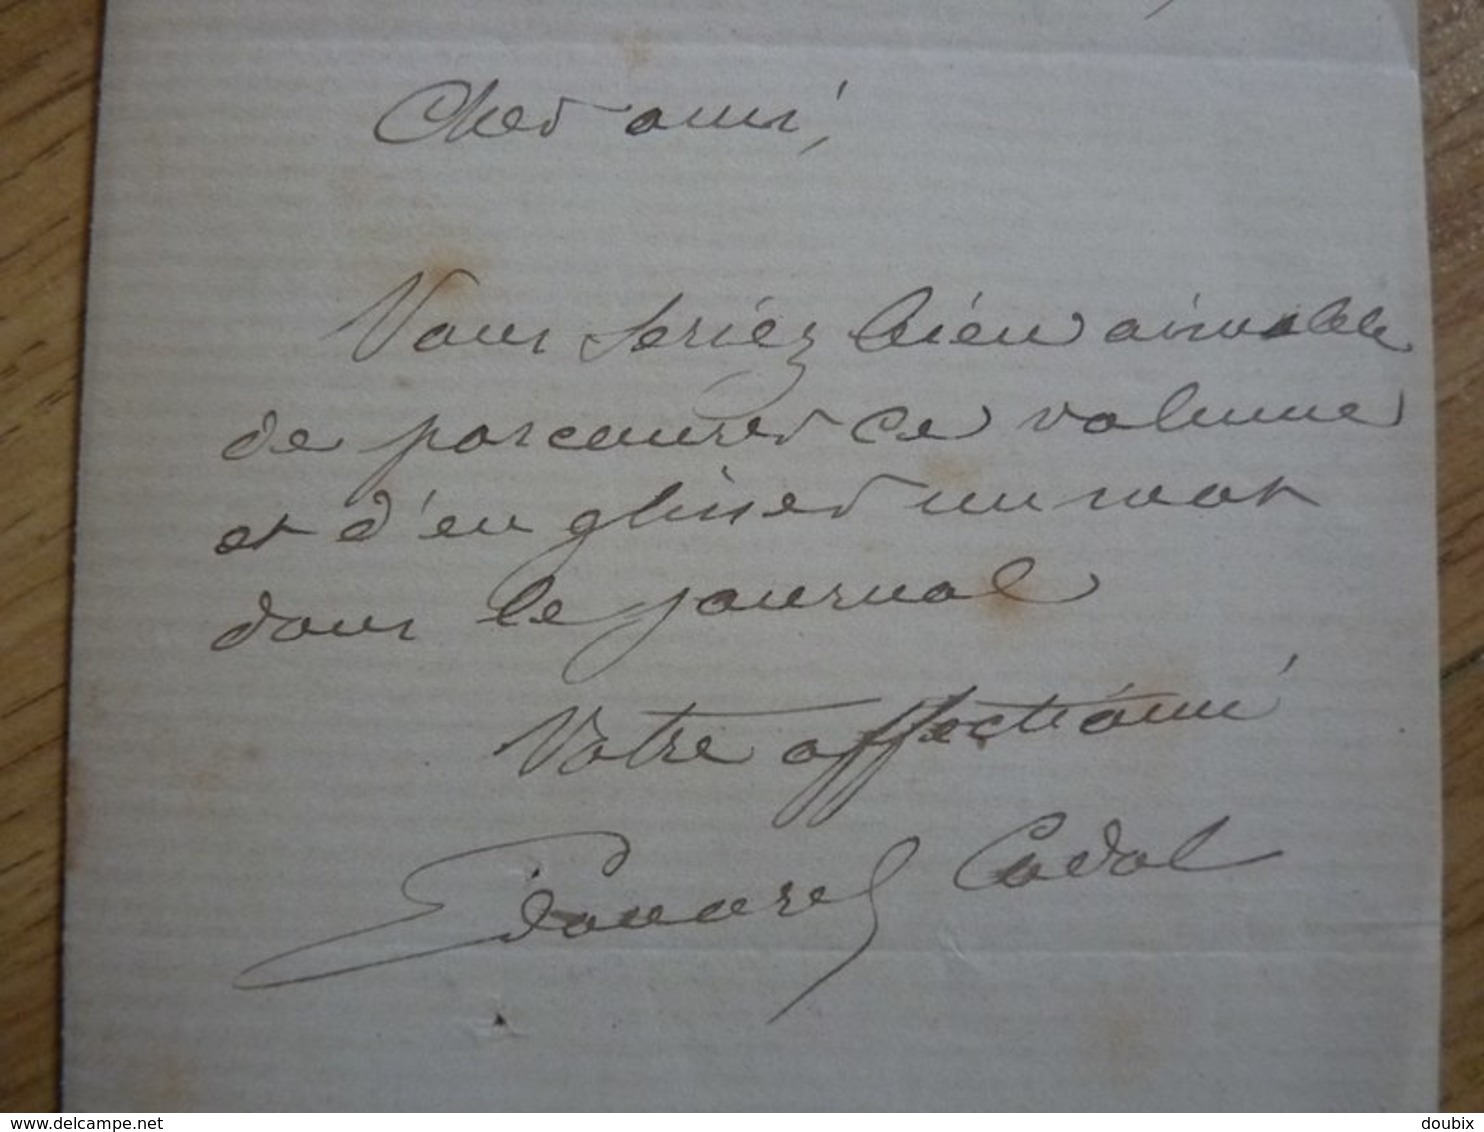 Cher ami,
Vous seriez bien aimable
de parcourir ce volume
et d'en glisser un mot
dans le journal
Votre affectionné
Edouard Cadol
www.delcampe.net
doubix